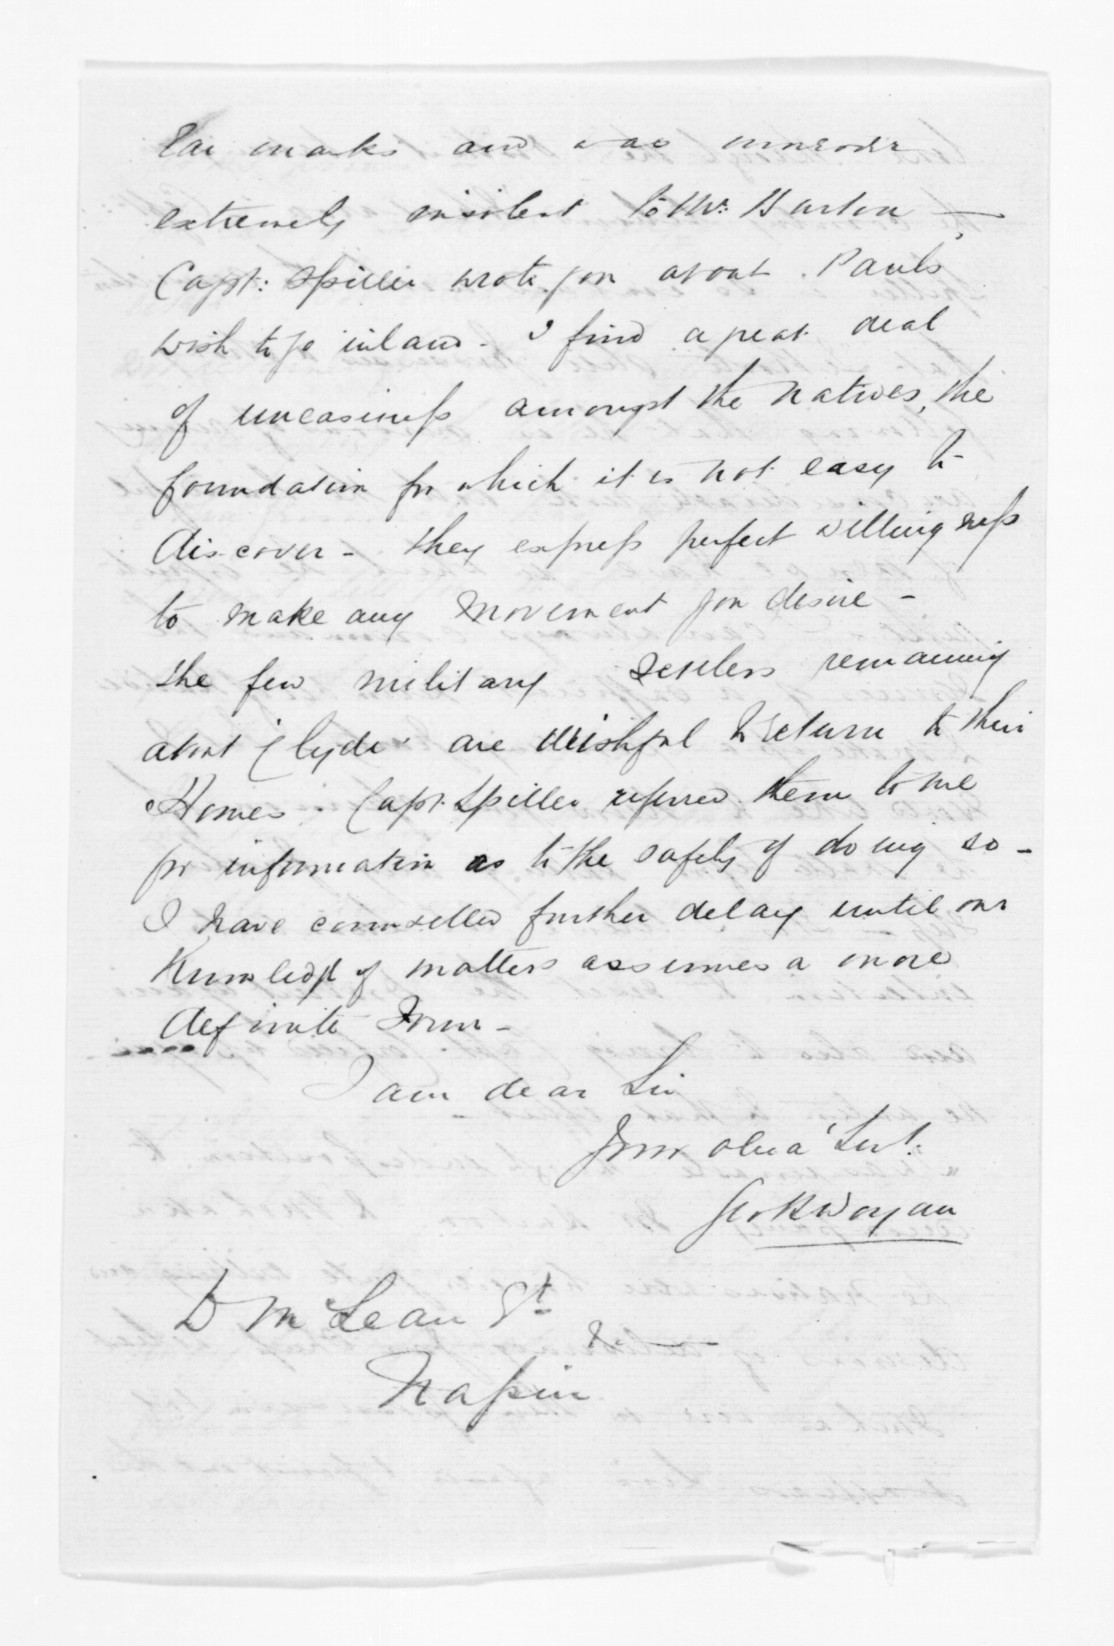 Ear marks and was moreover
extremely insolent to Mr. Burton —
Capt: Spiller wrote you about Paul's
wish to go inland - I find a great deal
of uneasiness amongst the natives, the
foundation for which it is not easy to
discover - they express perfect willingness
to make any movement you desire -
the few military settlers remaining
about Clyde are wishful to return to their
Homes. Capt. Spiller referred them to me
for information as to the safety of doing so -
I have counselled further delay until our
Knowledge of matters assumes a more
definite form -
I am dear Sir
Your obed Servt.
Geo K Worgan
D McLean Et
Napier